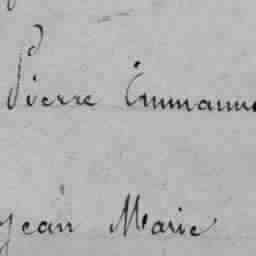 Pierre Emmanu
Jean Marie